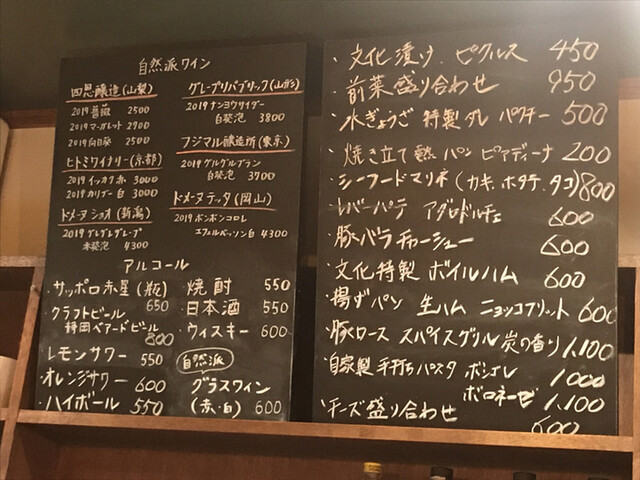 自然派ワイン
四恩醸造(山梨)
2019 薔薇 2500
2019 マーガレット 2900
2019 向日葵 2500
ヒトミワイナリー(京都)
2019 イッカク 赤 3000
2019 カリブー 白 3000
ドメーヌショオ(新潟)
2019
4300
グレープリパブリック(山形)
2019 ナンヨウサイダー
白発泡 3800
フジマル醸造所(東京)
2019 グルグルブラン
白発泡 3700
ドメーヌテッタ(岡山)
2019 ボンボンコロレ
白 4300
アルコール
サッポロ赤星(瓶)
650
クラフトビール
静岡ベアードビール
800
レモンサワー 550
オレンジサワー 600
ハイボール 550
焼酎 550
日本酒 550
ウィスキー 600
自然派
グラスワイン
(赤・白) 600
・文化漬け、ピクルス 450
・前菜盛り合わせ 950
・水ぎょうざ 特製ダレ パクチー 500
・焼き立て熱パン ピアディーナ 200
・シーフードマリネ(カキ、ホタテ、タコ) 800
・レバーパテ アグロドルチェ 600
・豚バラチャーシュー 600
・文化特製 ボイルハム 600
・揚げパン 生ハム ニョッコフリット 600
・豚ロース スパイスグリル 炭の香り 1,100
・自家製 手打ちパスタ ボンゴレ 1000
ボロネーゼ 1,100
・チーズ盛り合わせ 600